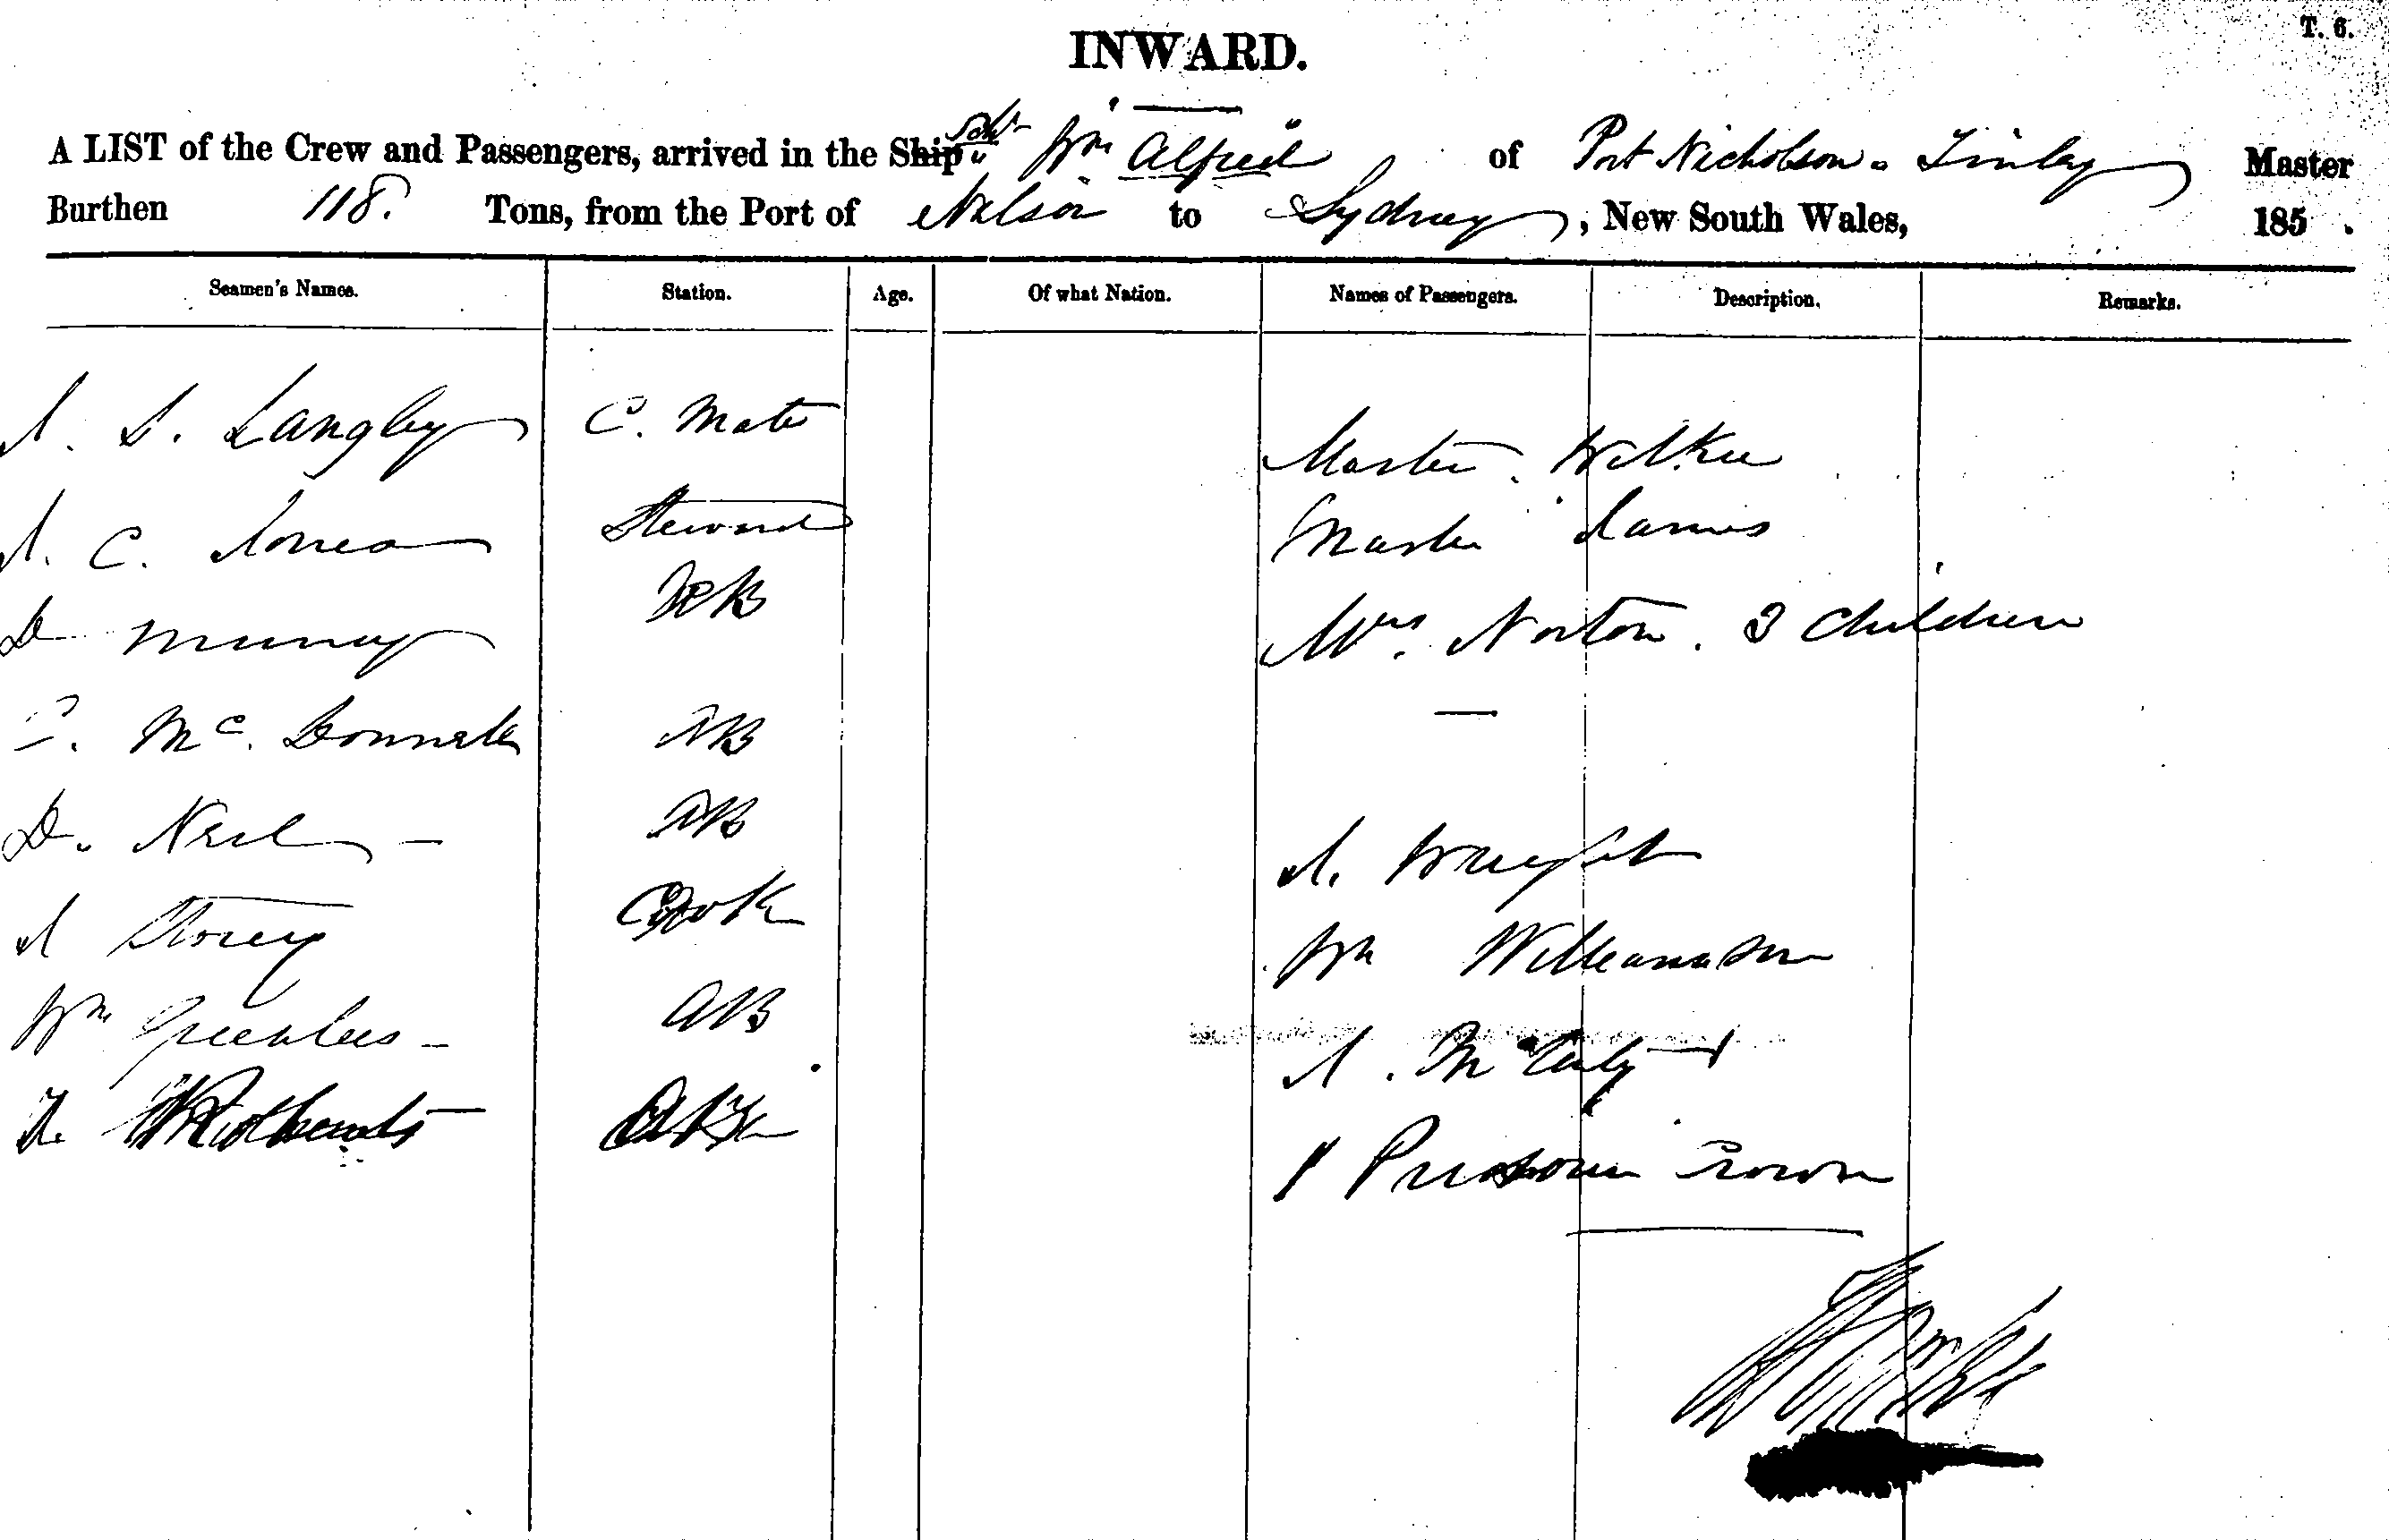 T. 6.
INWARD.
A LIST of the Crew and Passengers, arrived in the Ship Schr Wm Alfred of Port Nicholson - Tinley Master
Burthen 118. Tons, from the Port of Nelson to Sydney, New South Wales, 185 .
Seamen's Names. Station. Age. Of what Nation. Names of Passengers. Description. Remarks.
J. S. Langley C. Mate
Master Wilkie
J. C. Jones Steward
Master James
D Murray AB
Mrs. Norton. 3 Children
Mc. Donnell AB
D. Neil AB
J. Wright
J Storey Cook
Wm Williamson
Wm Greenlees AB
J. Mc
1 Prisoner Crown